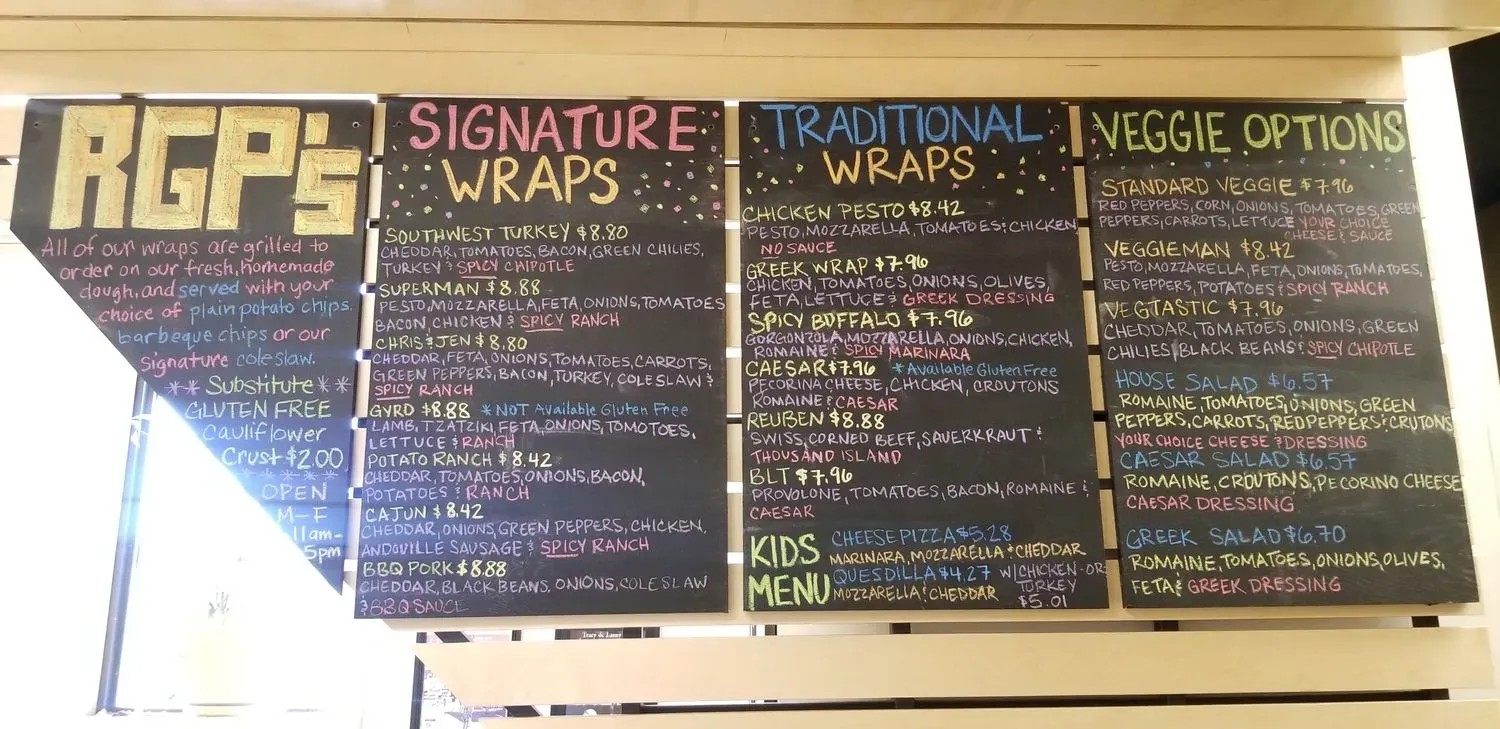 RGP's
All of our wraps are grilled to
order on our fresh, homemade
dough, and served with your
choice of plain potato chips,
barbeque chips or our
Signature coleslaw.
** Substitute **
GLUTEN FREE
Cauliflower
Crust $2.00
OPEN
M-F
11am-
5pm
SIGNATURE
WRAPS
SOUTHWEST TURKEY $8.80
CHEDDAR, TOMATOES, BACON, GREEN CHILIES,
TURKEY & SPICY CHIPOTLE
SUPERMAN $8.88
PESTO, MOZZARELLA, FETA, ONIONS, TOMATOES
BACON, CHICKEN & SPICY RANCH
CHRIS & JEN $8.80
CHEDDAR, FETA, ONIONS, TOMATOES, CARROTS,
GREEN PEPPERS, BACON, TURKEY, COLESLAW &
SPICY RANCH
GYRO $8.88 *NOT Available Gluten Free
LAMB, TZATZIKI, FETA, ONIONS, TOMOTOES,
LETTUCE & RANCH
POTATO RANCH $8.42
CHEDDAR, TOMATOES, ONIONS, BACON,
POTATOES & RANCH
CAJUN $8.42
CHEDDAR, ONIONS, GREEN PEPPERS, CHICKEN,
ANDOUILLE SAUSAGE & SPICY RANCH
BBQ PORK $8.88
CHEDDAR, BLACK BEANS, ONIONS, COLESLAW
& BBQ SAUCE
TRADITIONAL
WRAPS
CHICKEN PESTO $8.42
PESTO, MOZZARELLA, TOMATOES & CHICKEN
NO SAUCE
GREEK WRAP $7.96
CHICKEN, TOMATOES, ONIONS, OLIVES,
FETA, LETTUCE & GREEK DRESSING
SPICY BUFFALO $7.96
GORGONZOLA, MOZZARELLA, ONIONS, CHICKEN,
ROMAINE & SPICY MARINARA
CAESAR $7.96 *Available Gluten Free
PECORINA CHEESE, CHICKEN, CROUTONS
ROMAINE & CAESAR
REUBEN $8.88
SWISS, CORNED BEEF, SAUERKRAUT &
THOUSAND ISLAND
BLT $7.96
PROVOLONE, TOMATOES, BACON, ROMAINE &
CAESAR
KIDS
MENU
CHEESE PIZZA $5.28
MARINARA, MOZZARELLA & CHEDDAR
QUESDILLA $4.27 W/CHICKEN-OR-
MOZZARELLA & CHEDDAR TURKEY
$5.01
VEGGIE OPTIONS
STANDARD VEGGIE $7.96
RED PEPPERS, CORN, ONIONS, TOMATOES, GREEN
PEPPERS, CARROTS, LETTUCE YOUR CHOICE
CHEESE & SAUCE
VEGGIEMAN $8.42
PESTO, MOZZARELLA, FETA, ONIONS, TOMATOES,
RED PEPPERS, POTATOES & SPICY RANCH
VEGTASTIC $7.96
CHEDDAR, TOMATOES, ONIONS, GREEN
CHILIES, BLACK BEANS & SPICY CHIPOTLE
HOUSE SALAD $6.57
ROMAINE, TOMATOES, ONIONS, GREEN
PEPPERS, CARROTS, RED PEPPERS & CRUTONS
YOUR CHOICE CHEESE & DRESSING
CAESAR SALAD $6.57
ROMAINE, CROUTONS, PECORINO CHEESE
CAESAR DRESSING
GREEK SALAD $6.70
ROMAINE, TOMATOES, ONIONS, OLIVES,
FETA & GREEK DRESSING
Tracy & Lanny